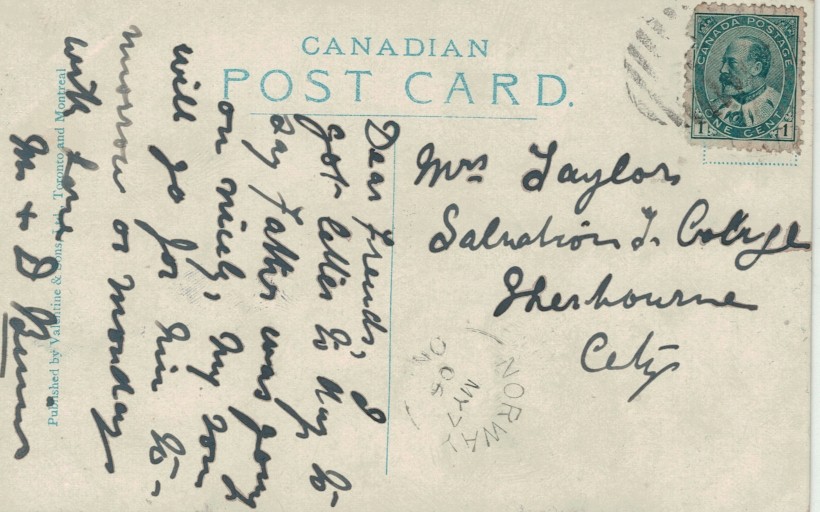 CANADIAN
POST CARD.
CANADA POSTAGE
1 ONE CENT 1
Mrs Taylor
Salvation T. College
Sherbourne
City
NORWAY
MY 7
Dear Friends, I
got letter to day to
say Father was going
on nicely, My Tom
will go for him to-
morrow or Monday
with love
M + D
Published by Valentine & Sons, Ltd., Toronto and Montreal